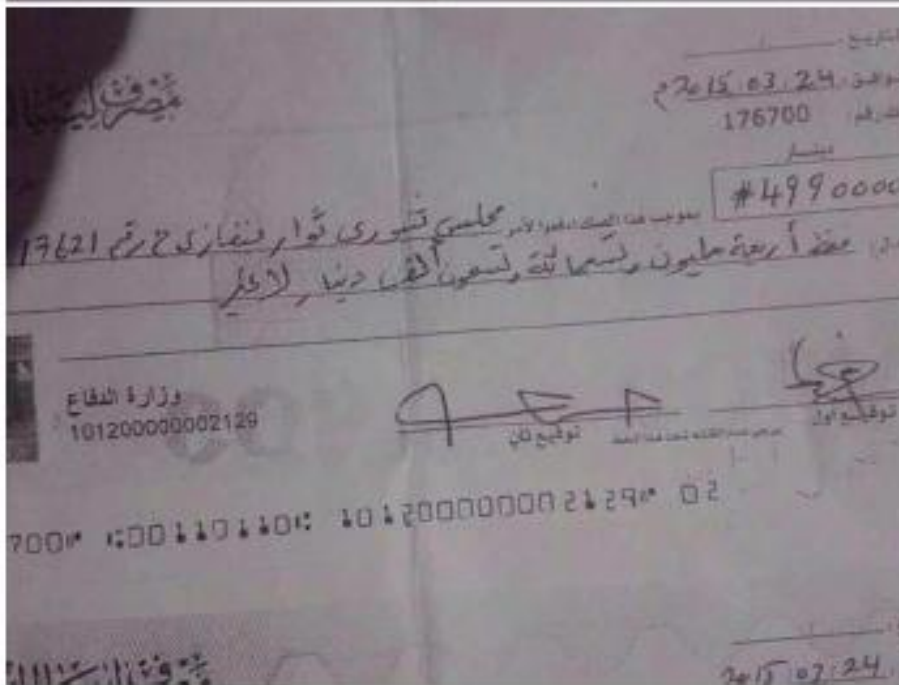 مصرف ليبيا
2015.03.24 م
176700
دينار
#4990000
بموجب هذا الصك ادفعوا لأمر مجلس شورى ثوار بنغازي ح رقم 17621
فقط أربعة مليون وتسعمائة وتسعون ألف دينار لا غير
وزارة الدفاع
101200000002129
توقيع ثان
توقيع أول
700⑈ ⑆001101101⑆ 101200000002129⑈ 02
2015 03 24